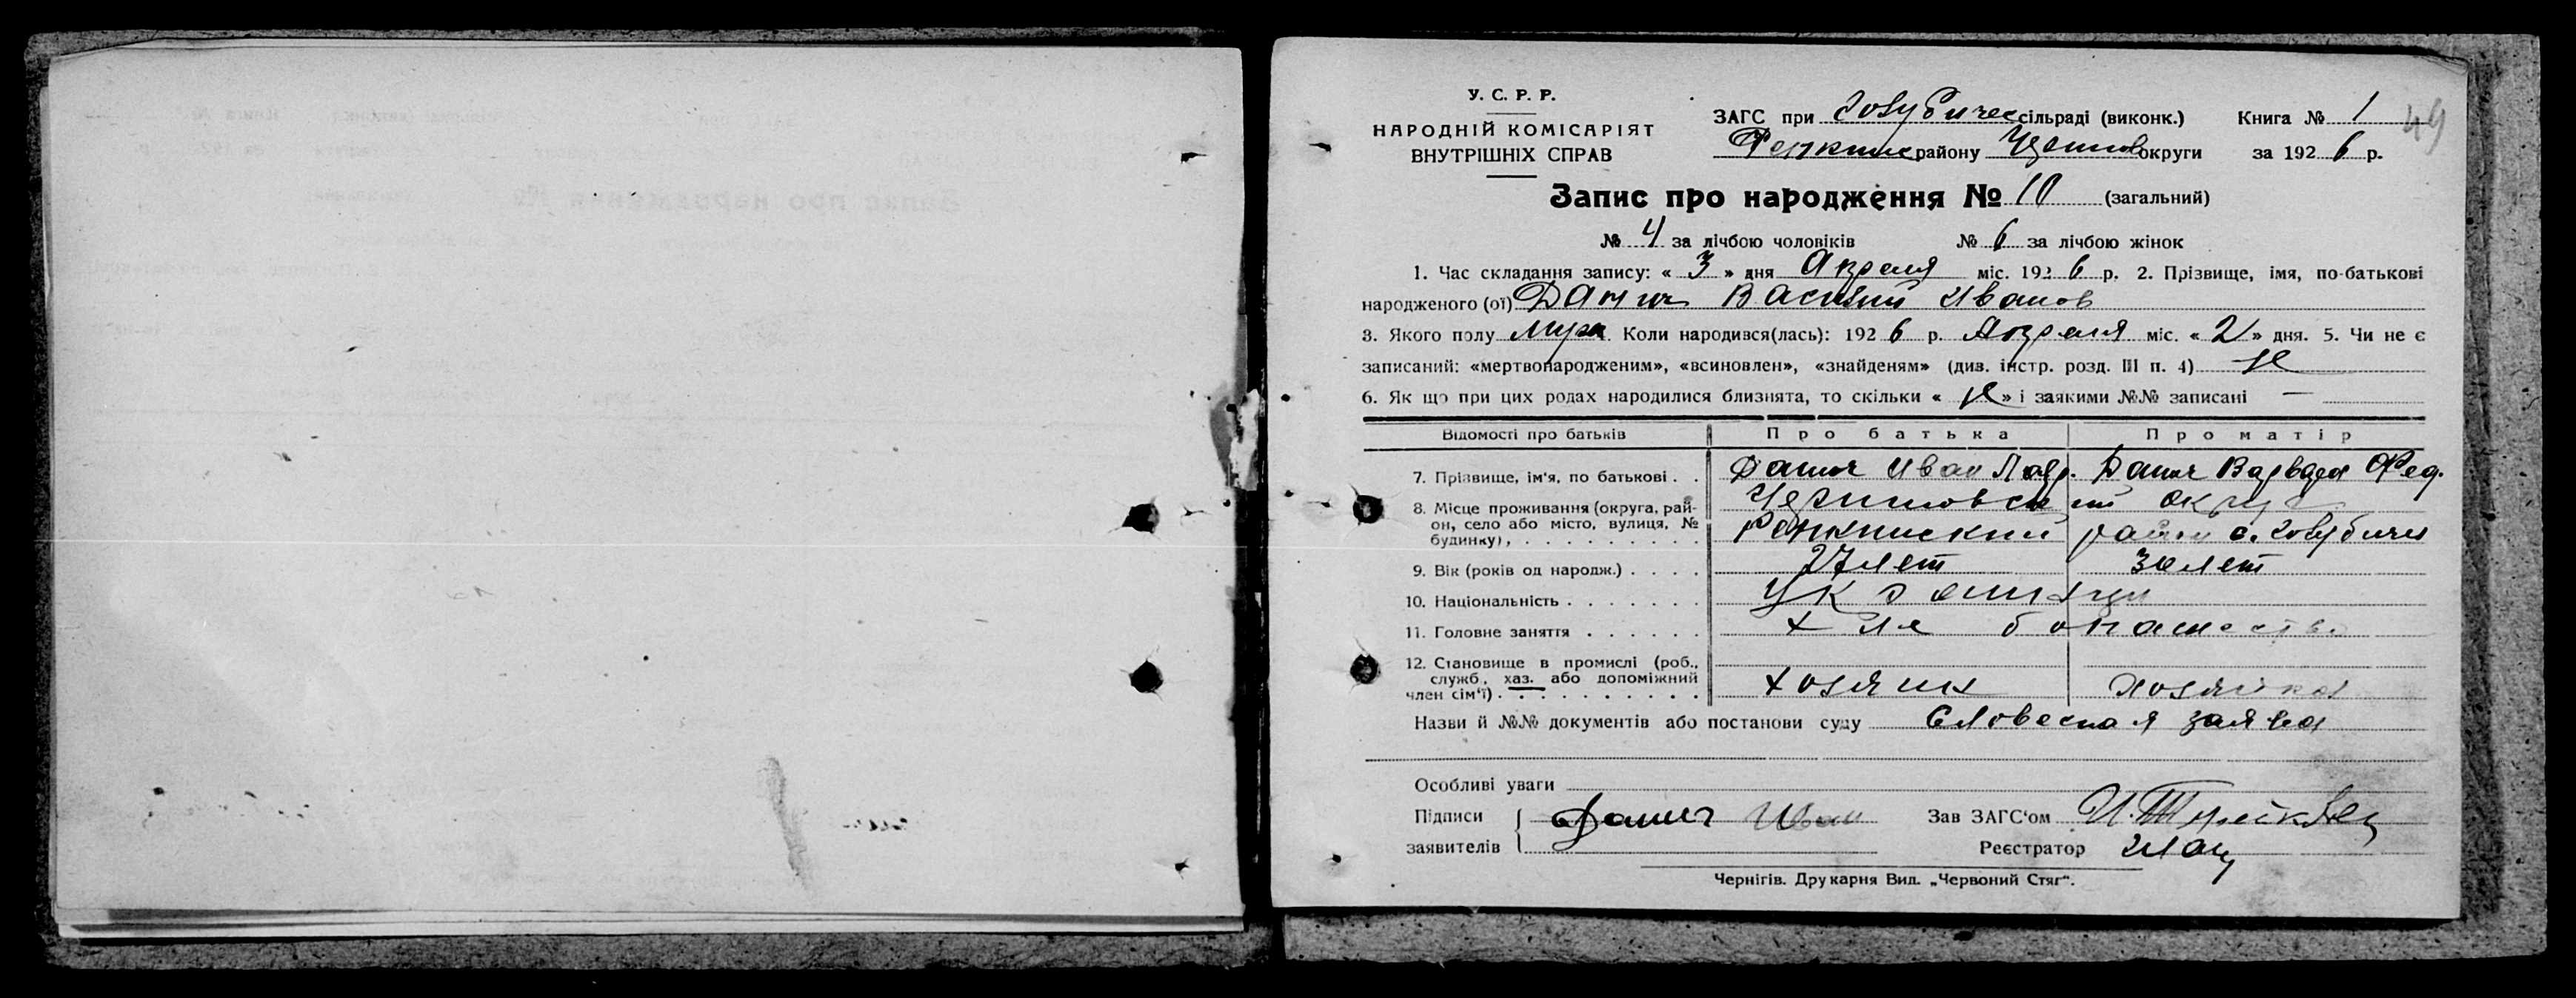 У. С. Р. Р.
НАРОДНІЙ КОМІСАРІЯТ
ВНУТРІШНІХ СПРАВ
ЗАГС при Голубичес сільраді (виконк.) Книга № 1
49
Репкинс району Черниговс округи за 1926 р.
Запис про народження № 10 (загальний)
№ 4 за лічбою чоловіків № 6 за лічбою жінок
1. Час складання запису: « 3 » дня Апреля міс. 1926 р. 2. Прізвище, імя, по-батькові
народженого (ої) Данич Василий Иванов
3. Якого полу Муж. Коли народився(лась): 1926 р. Апреля міс. « 2 » дня. 5. Чи не є
записаний: «мертвонародженим», «всиновлен», «знайденям» (див. інстр. розд. III п. 4)
6. Як що при цих родах народилися близнята, то скільки « » і заякими №№ записані —
Відомості про батьків Про батька Про матір
7. Прізвище, ім'я, по батькові . . Данич Иван Данич Варвара Фед.
8. Місце проживання (округа, рай- Черниговский округ
он, село або місто, вулиця, № Репкинский район с. Голубичи
будинку), . . . . . . . . . .
9. Вік (років од народж.) . . . . 27 лет 30 лет
10. Національність . . . . . . . Украинцы
11. Головне заняття . . . . . . Хлебопашество
12. Становище в промислі (роб.,
служб., хаз. або допоміжний
член сім'ї) . . . . . . . . . . хозяин хозяйка
Назви й №№ документів або постанови суду Словесная заява
Особливі уваги
Підписи Данич Иван Зав ЗАГС'ом
заявителів Реєстратор
Чернігів. Друкарня Вид. „Червоний Стяг“.